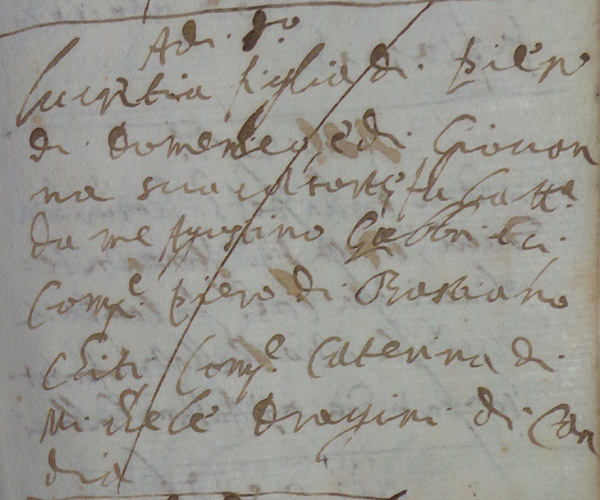 Adi. do
lucretia figlia di. piero
di domenico e di. Giovan
na sua consorte fu batta
da me Agustino Gabbrieli.
Compe. piero di. Bastiano
Chiti Compe Caterina di.
Michele Dragini di. Can
dia